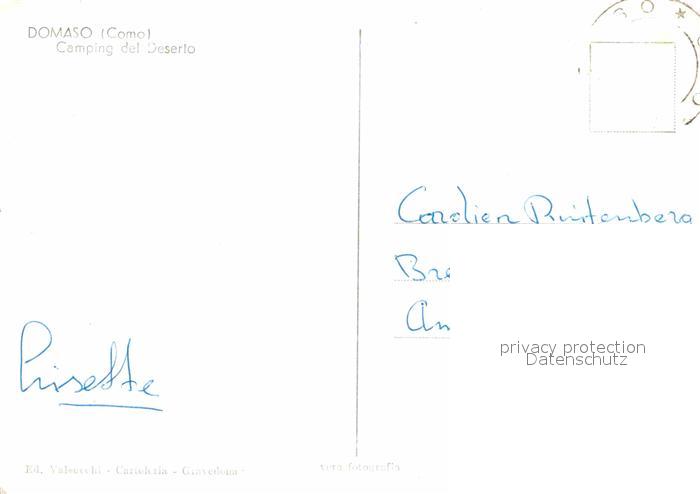 DOMASO (Como)
Camping del Deserto
Carolien Ruitenberg
Bre
Am
privacy protection
Datenschutz
Lisette
Ed. Valsecchi - Cartoleria - Gravedona
vera fotografia